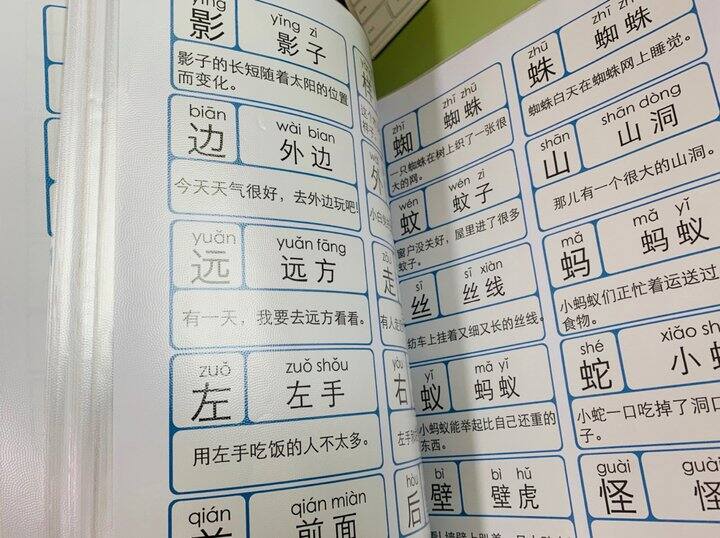 yǐng
影
yǐng zi
影 子
影子的长短随着太阳的位置
而变化。
biān
边
wài bian
外 边
今天天气很好，去外边玩吧！
yuǎn
远
yuǎn fāng
远 方
有一天，我要去远方看看。
zuǒ
左
zuǒ shǒu
左 手
用左手吃饭的人不太多。
qián
前
qián miàn
前 面
外
走
yòu
右
hòu
后
zhī
蜘
zhī zhū
蜘 蛛
一只蜘蛛在树上织了一张很
大的网。
wén
蚊
wén zi
蚊 子
窗户没关好，屋里进了很多
蚊子。
sī
丝
sī xiàn
丝 线
纺车上挂着又细又长的丝线。
yǐ
蚁
mǎ yǐ
蚂 蚁
小蚂蚁能举起比自己还重的
东西。
bì
壁
bì hǔ
壁 虎
zhū
蛛
zhī zhū
蜘 蛛
蜘蛛白天在蜘蛛网上睡觉。
shān
山
shān dòng
山 洞
那儿有一个很大的山洞。
mǎ
蚂
mǎ yǐ
蚂 蚁
小蚂蚁们正忙着运送过
食物。
shé
蛇
xiǎo sh
小 蛇
小蛇一口吃掉了洞口
子。
guài
怪
qí guài
奇 怪